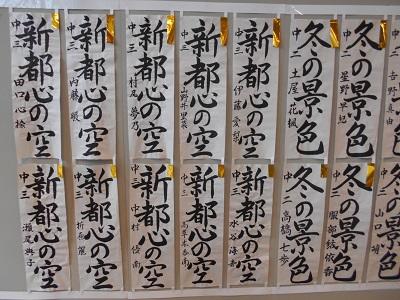 新都心の空
中三
田口心捻
新都心の空
中三
内藤
新都心の空
中三
村尾夢乃
新都心の空
中三
新都心の空
中三
伊藤愛梨
冬の景色
中二
土屋花楓
冬の景色
中二
星野早紀
中二
吉野真由
新都心の空
中三
瀬尾典子
新都心の空
中三
新都心の空
中三
中村優南
新都心の空
中三
新都心の空
中三
水谷海香
冬の景色
中二
高橋七歩
冬の景色
中二
服部紋依香
中二
山口